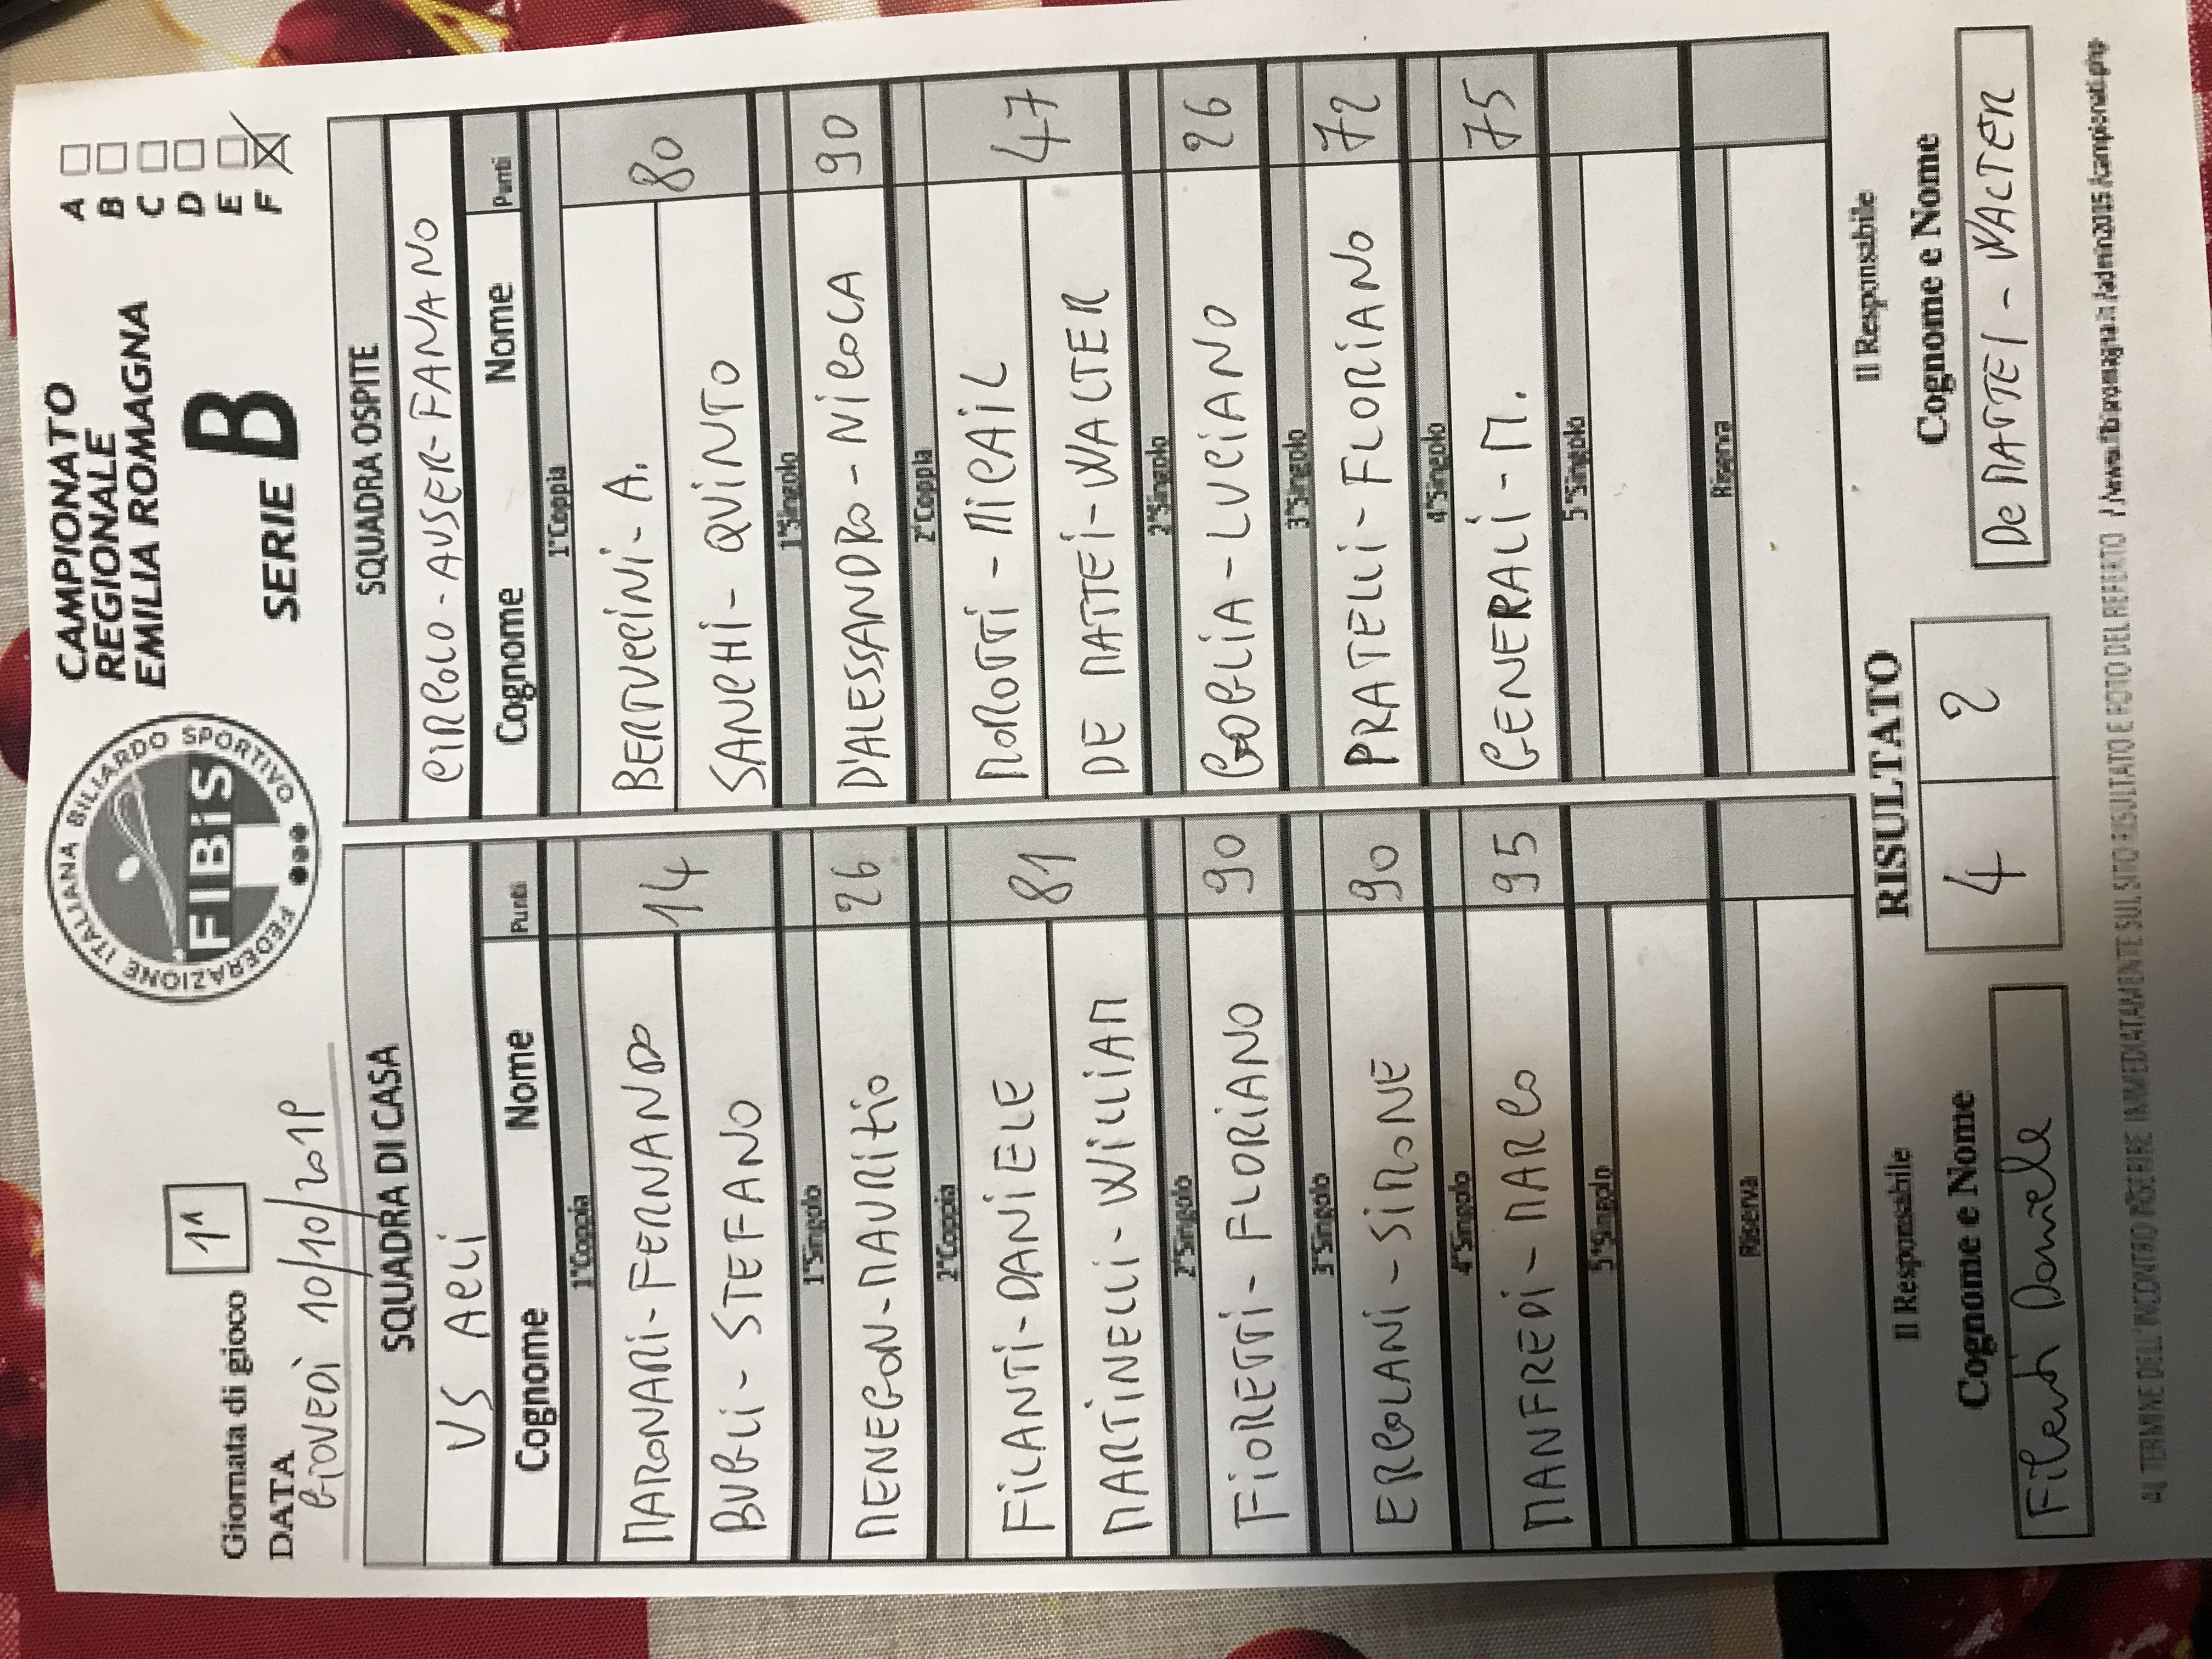 Giornata di gioco 1^
DATA
GIOVEDÌ 10/10/2019
FEDERAZIONE ITALIANA BILIARDO SPORTIVO
FIBiS
CAMPIONATO
REGIONALE
EMILIA ROMAGNA
SERIE B
A
B
C
D
E
F
SQUADRA DI CASA
VS ACLI
Cognome Nome Punti
1°Coppia
MARONARI-FERNANDO 14
BUGLI-STEFANO
1°Singolo
MENEGON-MAURITIO 26
2°Coppia
FILANTI-DANIELE 81
MARTINELLI-WILLIAM
2°Singolo
FIORETTI-FLORIANO 90
3°Singolo
ERCOLANI-SIMONE 90
4°Singolo
MANFREDI-MARCO 95
5°Singolo
Riserva
SQUADRA OSPITE
CIRCOLO-AUSER-FANANO
Cognome Nome Punti
1°Coppia
BERTUCCINI-A. 80
SANCHI-QUINTO
1°Singolo
D'ALESSANDRO-NICOLA 90
2°Coppia
MOROTTI-MICAIL 47
DE MATTEI-WALTER
2°Singolo
GOGLIA-LUCIANO 26
3°Singolo
PRATELLI-FLORIANO 72
4°Singolo
GENERALI-M. 75
5°Singolo
Riserva
Il Responsabile
Cognome e Nome
Filanti Daniele
RISULTATO
4 2
Il Responsabile
Cognome e Nome
De MATTEI-WALTER
AL TERMINE DELL'INCONTRO INSERIRE IMMEDIATAMENTE SUL SITO RISULTATO E FOTO DEL REFERTO